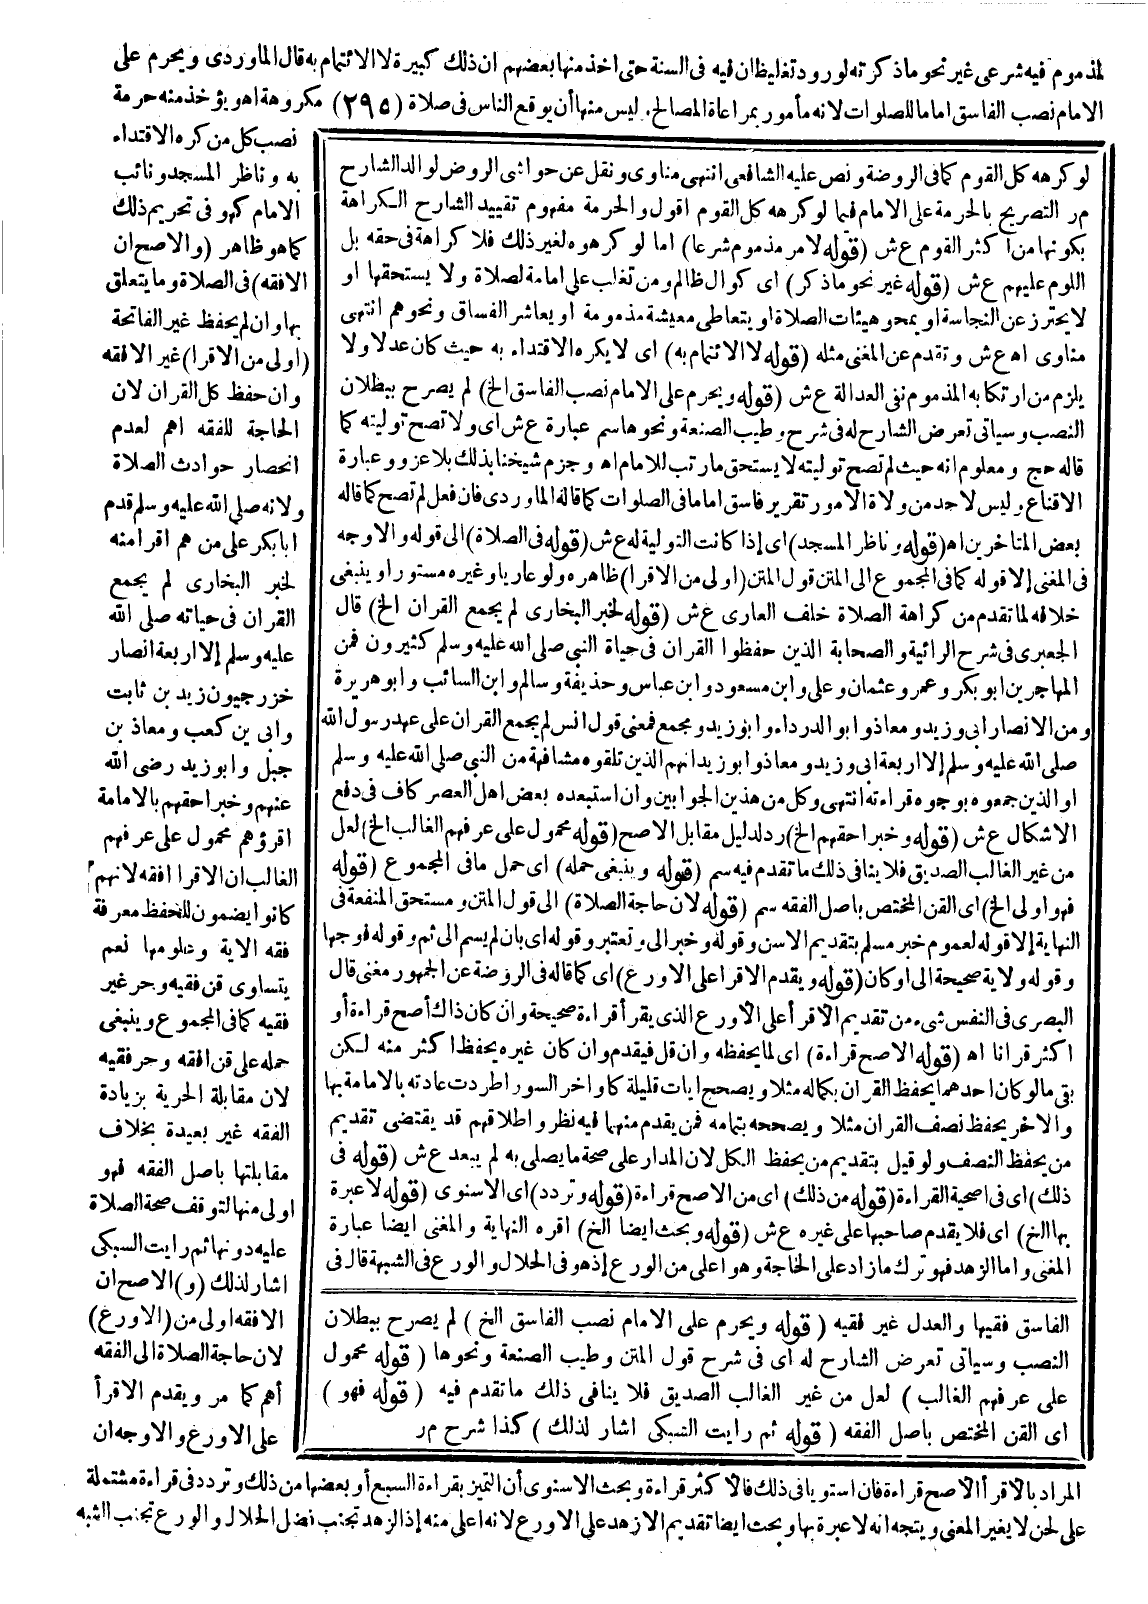 لمذموم فيه شرعى غير نحو ما ذكرته لورود تغليظان فيه فى السنة حتى اخذ منها بعضهم ان ذلك كبيرة لا الائتمام به قال الماوردى ويحرم على
الامام نصب الفاسق اماما للصلوات لانه مأمور بمراعاة المصالح. ليس منها أن يوقع الناس فى صلاة (٢٩٥) مكروهة اه ويؤخذ منه حرمة
نصب كل من كره الاقتداء
به وناظر المسجد ونائب
الامام كهو فى تحريم ذلك
كما هو ظاهر (والاصح ان
الافقه) فى الصلاة وما يتعلق
بها وان لم يحفظ غير الفاتحة
(اولى من الاقرا) غير الافقه
وان حفظ كل القران لان
الحاجة للفقه اهم لعدم
انحصار حوادث الصلاة
ولانه صلى الله عليه وسلم قدم
ابا بكر على من هم اقرا منه
لخبر البخارى لم يجمع
القران فى حياته صلى الله
عليه وسلم إلا اربعة انصار
خزرجيون زيد بن ثابت
وابى بن كعب ومعاذ بن
جبل وابو زيد رضى الله
عنهم وخبر احقهم بالامامة
اقرؤهم محمول على عرفهم
الغالب ان الاقرا افقه لانهم
كانوا يضمون للحفظ معرفة
فقه الاية وعلومها نعم
يتساوى قن فقيه وحر غير
فقيه كما فى المجموع وينبغى
حمله على قن افقه وحر فقيه
لان مقابلة الحرية بزيادة
الفقه غير بعيدة بخلاف
مقابلتها باصل الفقه فهو
اولى منها لتوقف صحة الصلاة
عليه دونها ثم رايت السبكى
اشار لذلك (و) الاصح ان
الافقه اولى من (الاورع)
لان حاجة الصلاة الى الفقه
أهم كما مر ويقدم الاقرأ
على الاورع والاوجه ان
المراد بالاقرأ الاصح قراءة فان استويا فى ذلك فالاكثر قراءة وبحث الاسنوى أن التميز بقراءة السبع أو بعضها من ذلك وتردد فى قراءة مشتملة
على لحن لا يغير المعنى ويتجه انه لا عبرة بها وبحث ايضا تقديم الازهد على الاورع لانه اعلى منه إذ الزهد تجنب فضل الحلال والورع تجنب الشبه
لو كرهه كل القوم كما فى الروضة ونص عليه الشافعى انتهى مناوى ونقل عن حواشى الروض لوالد الشارح
مر التصريح بالحرمة على الامام فيما لو كرهه كل القوم اقول والحرمة مفهوم تقييد الشارح الكراهة
بكونها من اكثر القوم ع ش (قوله لامر مذموم شرعا) اما لو كرهوه لغير ذلك فلا كراهة فى حقه بل
اللوم عليهم ع ش (قوله غير نحو ما ذكر) اى كوال ظالم ومن تغلب على امامة لصلاة ولا يستحقها او
لا يحترز عن النجاسة او يمحو هيئات الصلاة او يتعاطى معيشة مذمومة او يعاشر الفساق ونحوهم انتهى
مناوى اه ع ش وتقدم عن المغنى مثله (قوله لا الائتمام به) اى لا يكره الاقتداء به حيث كان عدلا ولا
يلزم من ارتكابه المذموم نفى العدالة ع ش (قوله ويحرم على الامام نصب الفاسق الخ) لم يصرح ببطلان
النصب وسياتى تعرض الشارح له فى شرح وطيب الصنعة ونحوها سم عبارة ع ش اى ولا تصح توليته كما
قاله حج ومعلوم انه حيث لم تصح توليته لا يستحق ما رتب للامام اه وجزم شيخنا بذلك بلا عزو وعبارة
الاقناع وليس لاحد من ولاة الامور تقرير فاسق اماما فى الصلوات كما قاله الماوردى فان فعل لم تصح كما قاله
بعض المتاخرين اه (قوله وناظر المسجد) اى إذا كانت التولية له ع ش (قوله فى الصلاة) الى قوله والاوجه
فى المغنى إلا قوله كما فى المجموع الى المتن قول المتن (اولى من الاقرا) ظاهره ولو عاريا وغيره مستورا وينبغى
خلافه لما تقدم من كراهة الصلاة خلف العارى ع ش (قوله لخبر البخارى لم يجمع القران الخ) قال
الجعبرى فى شرح الرائية والصحابة الذين حفظوا القران فى حياة النبى صلى الله عليه وسلم كثيرون فمن
المهاجرين ابو بكر وعمر وعثمان وعلى وابن مسعود وابن عباس وحذيفة وسالم وابن السائب وابو هريرة
ومن الانصار ابى وزيد ومعاذ وابو الدرداء وابو زيد ومجمع فمعنى قول انس لم يجمع القران على عهد رسول الله
صلى الله عليه وسلم إلا اربعة ابى وزيد ومعاذ وابو زيد انهم الذين تلقوه مشافهة من النبى صلى الله عليه وسلم
او الذين جمعوه بوجوه قراءته انتهى وكل من هذين الجوابين وان استبعده بعض اهل العصر كاف فى دفع
الاشكال ع ش (قوله وخبر احقهم الخ) رد لدليل مقابل الاصح (قوله محمول على عرفهم الغالب الخ) لعل
من غير الغالب الصديق فلا ينافى ذلك ما تقدم فيه سم (قوله وينبغى حمله) اى حمل ما فى المجموع (قوله
فهو اولى الخ) اى القن المختص باصل الفقه سم (قوله لان حاجة الصلاة) الى قول المتن ومستحق المنفعة فى
النهاية إلا قوله لعموم خبر مسلم بتقديم الاسن وقوله وخبر الى وتعتبر وقوله اى بان لم يسم الى ثم وقوله فوجها
وقوله ولاية صحيحة الى او كان (قوله ويقدم الاقرا على الاورع) اى كما قاله فى الروضة عن الجمهور مغنى قال
البصرى فى النفس شىء من تقديم الاقرأ على الأورع الذى يقرأ قراءة صحيحة وان كان ذاك أصح قراءة أو
اكثر قرانا اه (قوله الاصح قراءة) اى لما يحفظه وان قل فيقدم وان كان غيره يحفظ اكثر منه لكن
بقى ما لو كان احدهما يحفظ القران بكماله مثلا ويصحح ايات قليلة كاواخر السور اطردت عادته بالامامة بها
والاخر يحفظ نصف القران مثلا ويصححه بتمامه فمن يقدم منهما فيه نظر واطلاقهم قد يقتضى تقديم
من يحفظ النصف ولو قيل بتقديم من يحفظ الكل لان المدار على صحة ما يصلى به لم يبعد ع ش (قوله فى
ذلك) اى فى اصحية القراءة (قوله من ذلك) اى من الاصح قراءة (قوله وتردد) اى الاسنوى (قوله لا عبرة
بها الخ) اى فلا يقدم صاحبها على غيره ع ش (قوله وبحث ايضا الخ) اقره النهاية والمغنى ايضا عبارة
المغنى واما الزهد فهو ترك ما زاد على الحاجة وهو اعلى من الورع إذ هو فى الحلال والورع فى الشبهة قال فى
الفاسق فقيها والعدل غير فقيه (قوله ويحرم على الامام نصب الفاسق الخ) لم يصرح ببطلان
النصب وسياتى تعرض الشارح له اى فى شرح قول المتن وطيب الصنعة ونحوها (قوله محمول
على عرفهم الغالب) لعل من غير الغالب الصديق فلا ينافى ذلك ما تقدم فيه (قوله فهو)
اى القن المختص باصل الفقه (قوله ثم رايت السبكى اشار لذلك) كذا شرح مر